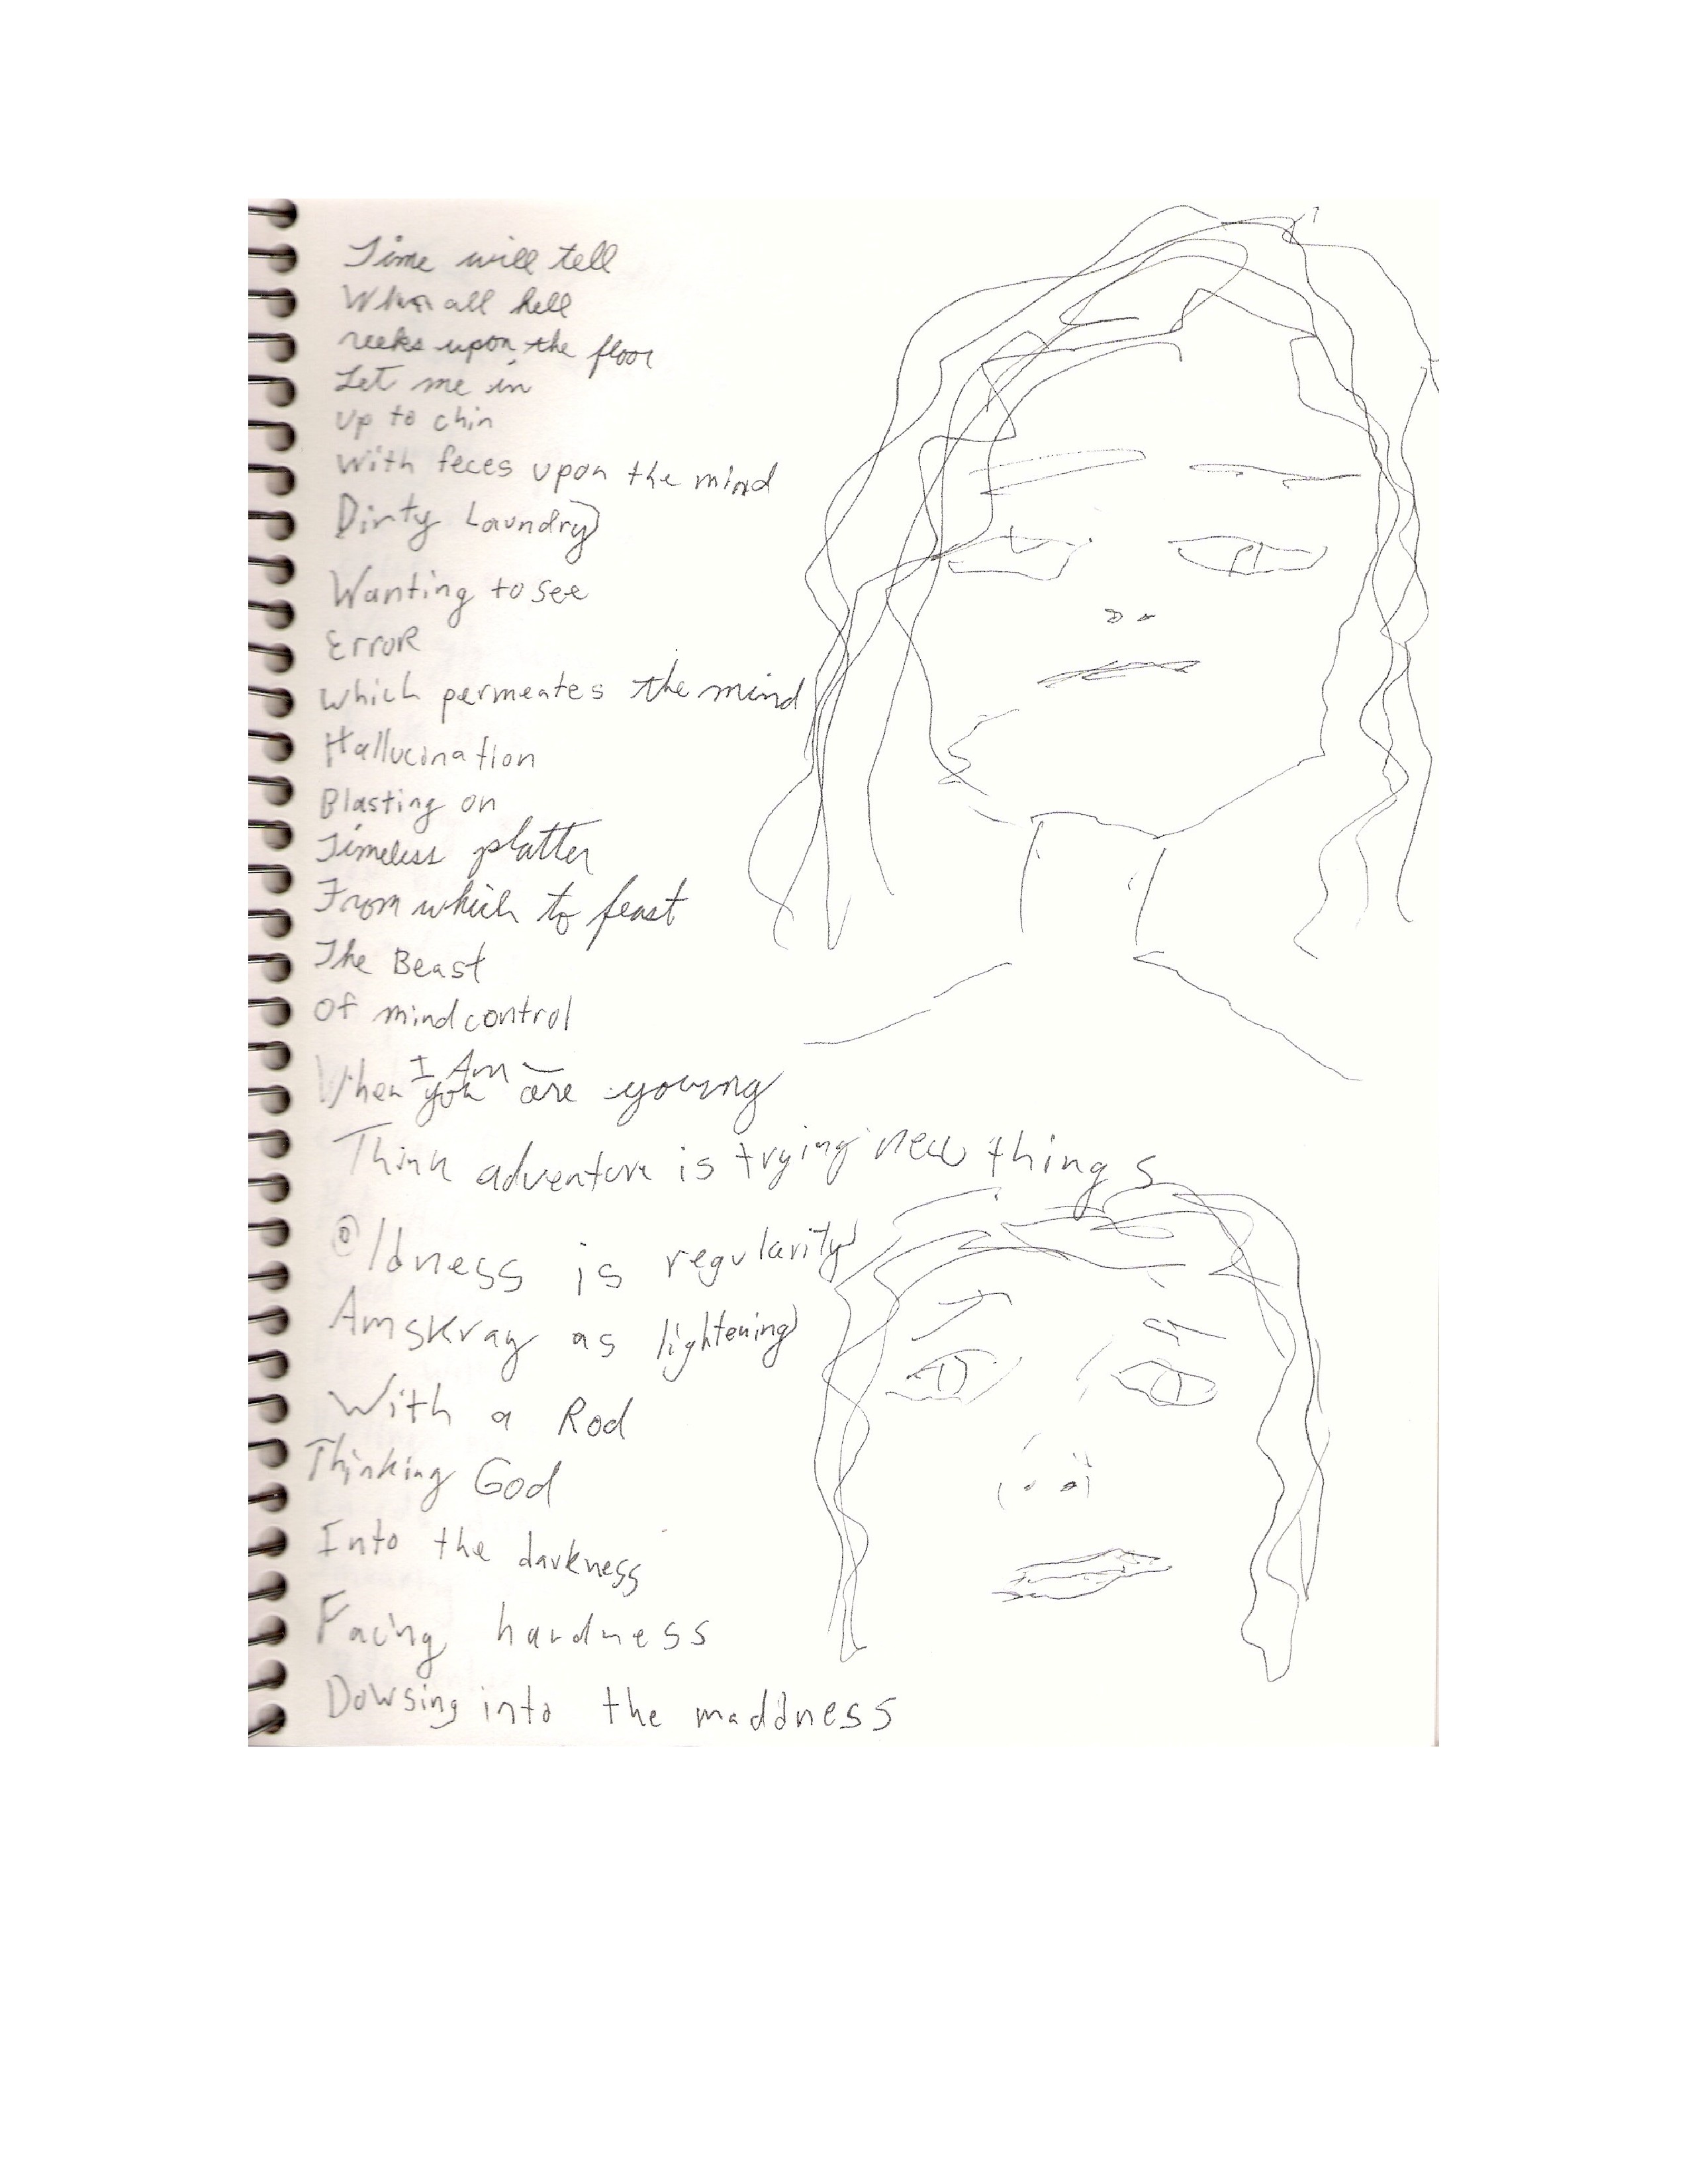 Time will tell
When all hell
reeks upon the floor
Let me in
up to chin
With feces upon the mind
Dirty Laundry
Wanting to see
ErroR
which permeates the mind
Hallucination
Blasting on
Timeless platter
From which to feast
The Beast
Of mind control
I Am
When you are young
Think adventure is trying new things
Oldness is regularity
Amskray as lightening
With a Rod
Thinking God
Into the darkness
Facing hardness
Dowsing into the maddness